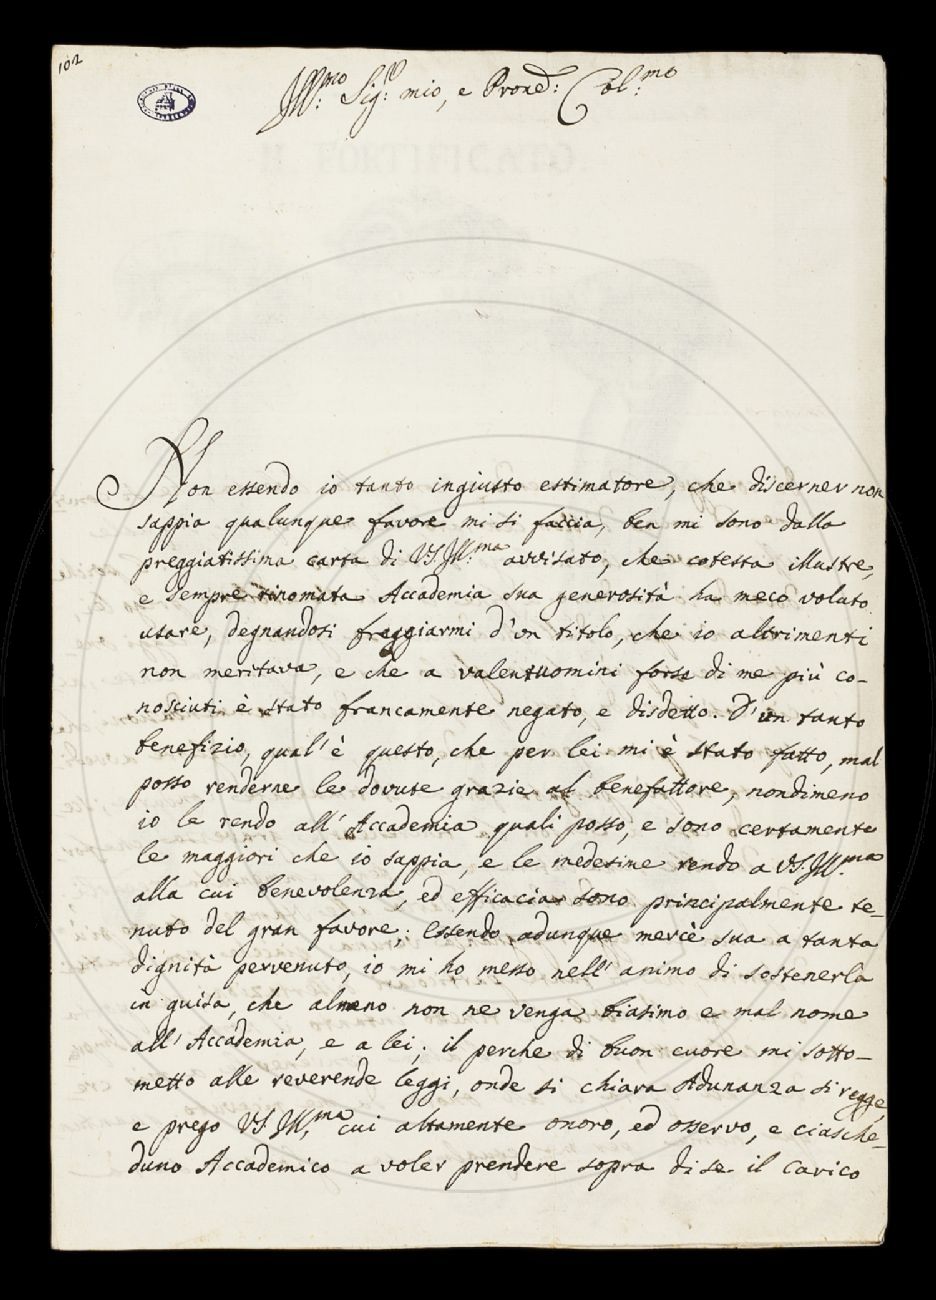 102
Ill:mo Sig:re mio, e Prone: Col:mo
Non essendo io tanto ingiusto estimatore, che discerner non
sappia qualunque favore mi si faccia, ben mi sono dalla
preggiatissima carta di VS. Ill:ma avvisato, che cotesta illustre,
e sempre rinomata Accademia sua generosità ha meco voluto
usare, degnandosi freggiarmi d'un titolo, che io altrimenti
non meritava, e che a valentuomini forse di me più co-
nosciuti è stato francamente negato, e disdetto. D'un tanto
benefizio, qual'è questo, che per lei mi è stato fatto, mal
posso renderne le dovute grazie al benefattore, nondimeno
io le rendo all'Accademia quali posso, e sono certamente
le maggiori che io sappia, e le medesime rendo a VS. Ill:ma
alla cui benevolenza, ed efficacia sono principalmente te-
nuto del gran favore; Essendo adunque mercè sua a tanta
dignità pervenuto, io mi ho messo nell'animo di sostenerla
in guisa, che almeno non ne venga biasimo e mal nome
all'Accademia, e a lei; il perche di buon cuore mi sotto-
metto alle reverende leggi, onde si chiara Adunanza si regge,
e prego VS. Ill:ma cui altamente onoro, ed osservo, e ciasche-
duno Accademico a voler prendere sopra di se il carico